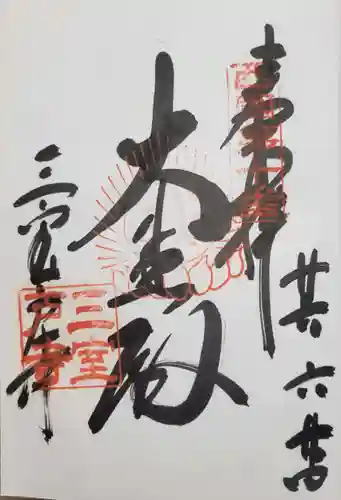 廿六 六
奉拝
西國第十番
大悲殿
三室戸寺
三室戸寺